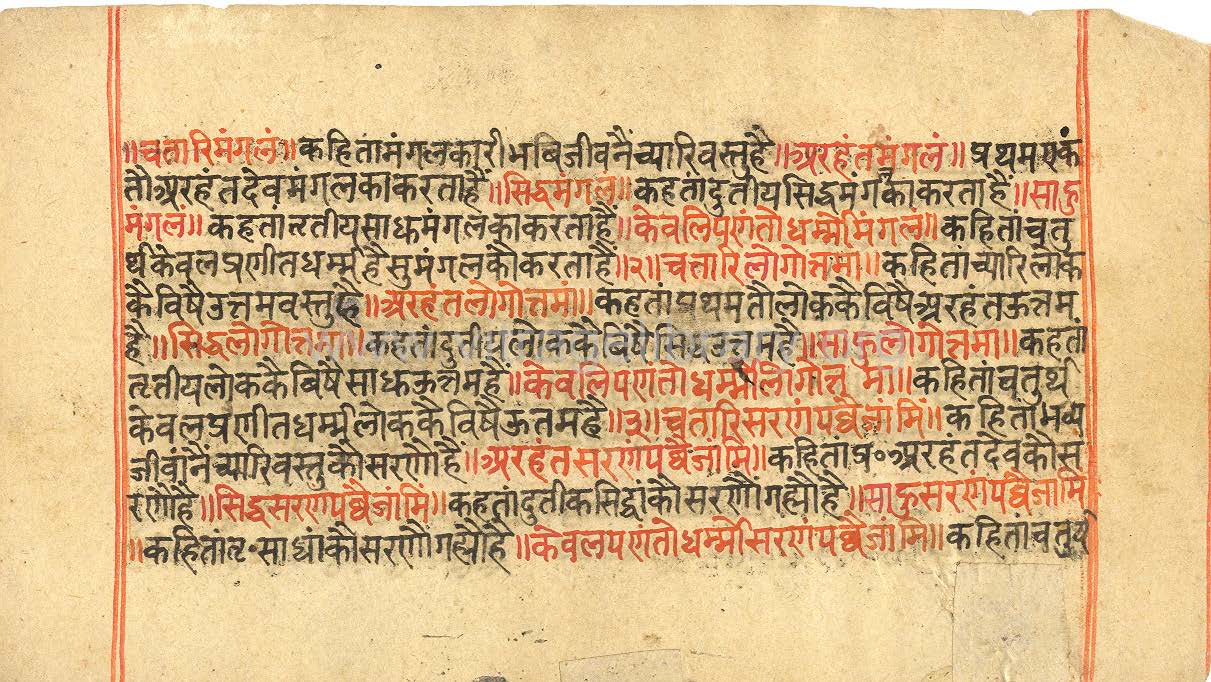 ॥चतारिमंगलं॥कहितामंगलकारीभविजीवनैंच्यारिवस्तुहै॥अरहंतमंगलं॥प्रथमएकं
तौअरहंतदेवमंगलकाकरताहैं॥सिद्धमंगलं॥कहतांदुतीयसिद्धमंगर्काकरताहैं॥साहु
मंगलं॥कहतातृतीयसाधमंगलकाकरताहैं॥केवलिपणंतोधर्म्मोमंगलं॥कहितांचतु
र्थकेवलप्रणीतधर्म्महैसुमंगलकौकरताहै॥२॥चत्तारिलोगोत्तमा॥कहितांच्यारिलोक
कैविषैउत्तमवस्तुहै॥अरहंतलोगोत्तमा॥कहतांप्रथमतौलोककैविषैअरहंतऊत्तम
है॥सिद्धलोगोत्तमा॥कहतांदुतीयलोककैबिषैसिधउत्तमहै॥साहुलोगोत्तमा॥कहतां
तृतीयलोककैबिषैसाधऊत्तमहै॥केवलिपणंतोधर्म्मोलोगोत्तमा॥कहितांचतुर्थ
केवलप्रणीतधर्म्मलोककैविषैऊतमहै॥३॥चतारिसरणंपव्वैजांमिं॥कहितांभव्य
जीवांनैंच्यारिवस्तुकौसरणौहैं॥अरहंतसरणंपव्वैजांमि॥कहितांप्र॰अरहंतदेवकौस
रणौहै॥सिद्धसरणंपव्वैजांमिं॥कहतांदुतीकसिद्धांकौसरणौंगह्यौहै॥साहुसरणंपव्वैजांमि
॥कहितांतृ॰साधांकौसरणौंगह्यौहै॥केवलपणंतोधर्म्मोसरणंपव्वैजांमि॥कहितांचतुर्थ